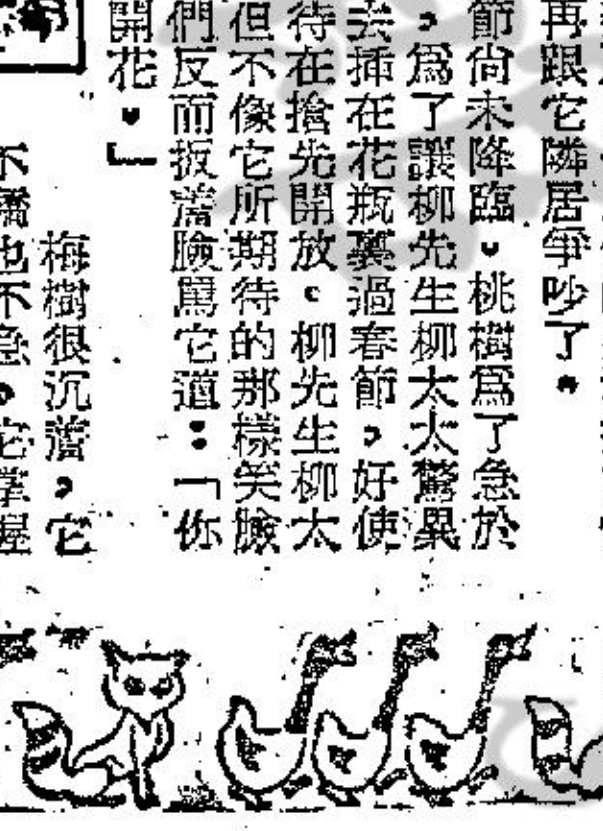 再跟它隣居爭吵了。
節尙未降臨。桃樹爲了急於
，爲了讓柳先生柳太太驚異
去揷在花瓶裏過春節，好使
待在搶先開放。柳先生柳太
但不像它所期待的那樣笑臉
們反而扳着臉罵它道：「你
開花。」
梅樹很沉着，它
不
也不急。它掌握